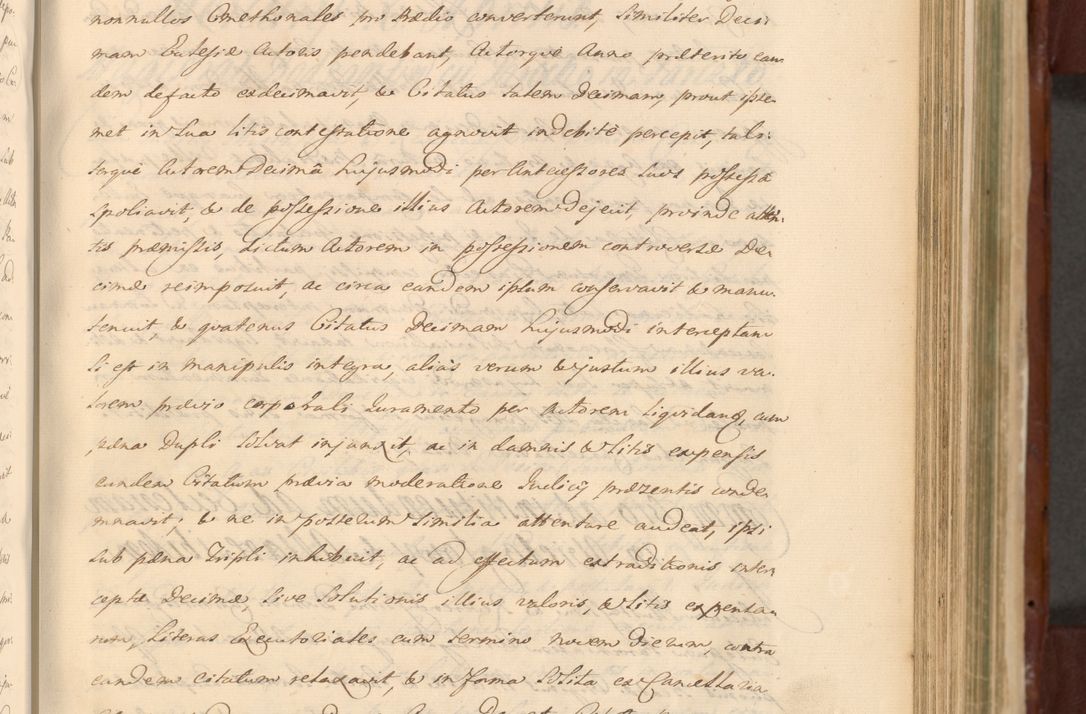 nonnullos Cmethonales pro Prædio converterunt, similiter Deci-
mam Ecclesiæ Actoris pendebant, Actorque Anno præterito ean-
dem defacto exdecimavit, & Citatus talem Decimam, prout ipse-
met in sua litis contestatione agnovit indebitè percepit, tali-
terque Actorem Decimâ hujusmodi per Antecessores suos possessa
spoliavit, & de possessione illius Actorem dejecit, proinde atten-
tis præmissis, dictum Actorem in possessionem controversæ De-
cimæ reimposuit, ac circa eandem ipsum conservavit & manu-
tenuit, & quatenus Citatus Decimam hujusmodi interceptam
si est in manipulis integra, aliàs verum & justum illius va-
lorem prævio corporali Juramento per Actorem liquidand, cum
pæna Dupli solvat injunxit, ac in damnis & Litis expensis
eundem Citatum prævia moderatione Judicij præzentis conde-
mnavit; & ne in posterum similia attentare audeat, ipsi
sub pæna Tripli inhibuit, ac ad effectum extraditionis inter-
ceptæ Decimæ, sive solutionis illius valoris, & Litis expensa-
rum, Literas Executoriales cum termino novem dierum, contra
eundem citatum relaxavit, & in forma solita ex Cancellaria